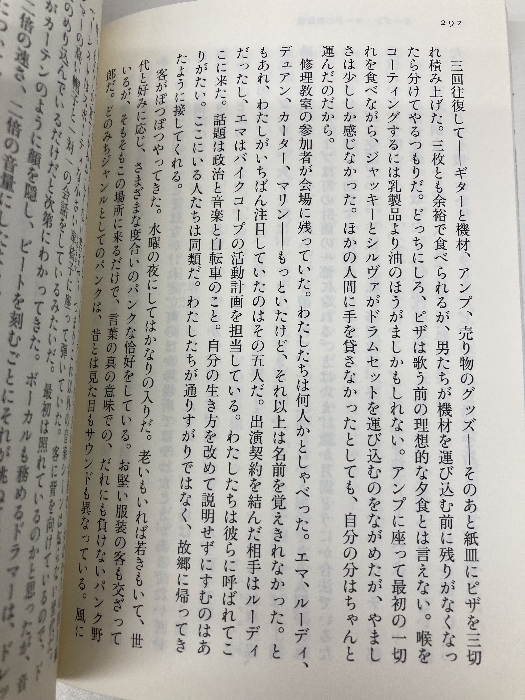 292
三回往復して――ギターと機材、アンプ、売り物のグッズ――そのあと紙皿にピザを三切
れ積み上げた。三枚とも余裕で食べられるが、男たちが機材を運び込む前に残りがなくなっ
たら分けてやるつもりだ。どっちにしろ、ピザは歌う前の理想的な夕食とは言えない。喉を
コーティングするには乳製品より油のほうがましかもしれない。アンプに座って最初の一切
れを食べながら、ジャッキーとシルヴァがドラムセットを運び込むのをながめたが、やまし
さは少ししか感じなかった。ほかの人間に手を貸さなかったとしても、自分の分はちゃんと
運んだのだから。
修理教室の参加者が会場に残っていた。わたしたちは何人かとしゃべった。エマ、ルーディ、
デュアン、カーター、マリン――もっといたけど、それ以上は名前を覚えきれなかった。と
もあれ、わたしがいちばん注目していたのはその五人だ。出演契約を結んだ相手はルーディ
だったし、エマはバイクコープの活動計画を担当している。わたしたちは彼らに呼ばれてこ
こに来た。話題は政治と音楽と自転車のこと。自分の生き方を改めて説明せずにすむのはあ
りがたい。ここにいる人たちは同類だ。わたしたちが通りすがりではなく、故郷に帰ってき
たように接してくれる。
客がぽつぽつやってきた。水曜の夜にしてはかなりの入りだ。老いもいれば若きもいて、世
代と好みに応じ、さまざまな度合いのパンクな恰好をしている。お堅い服装の客も交ざって
いるが、そもそもこの場所に来るだけで、言葉の真の意味での、だれにも負けないパンク野
郎だ。どのみちジャンルとしてのパンクは、昔とは見た目もサウンドも異なっている。風に